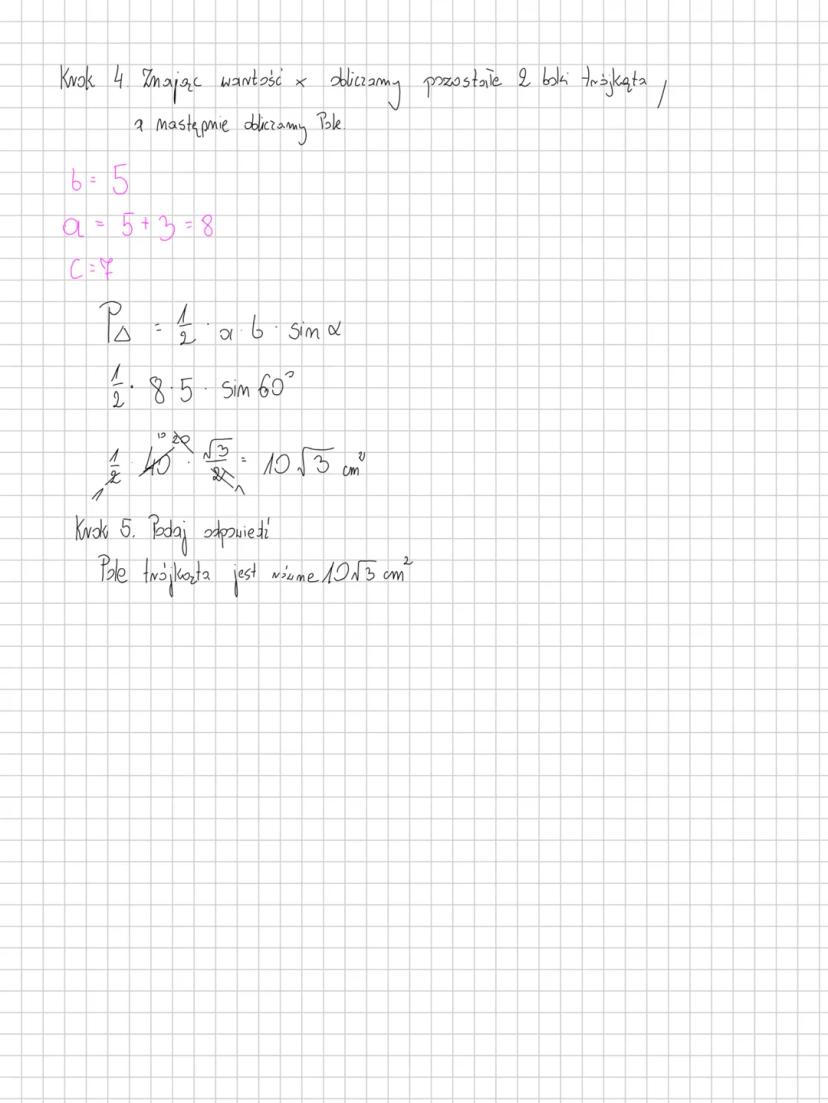 Krok 4. Znając wartość x obliczamy pozostałe 2 boki trójkąta,
a następnie obliczamy Pole.
b = 5
a = 5 + 3 = 8
c = 7
P△ = 1/2 · a · b · sin α
1/2 · 8 · 5 · sin 60°
1/2 · 40 · √3/2 = 10√3 cm²
Krok 5. Podaj odpowiedź
Pole trójkąta jest równe 10√3 cm²